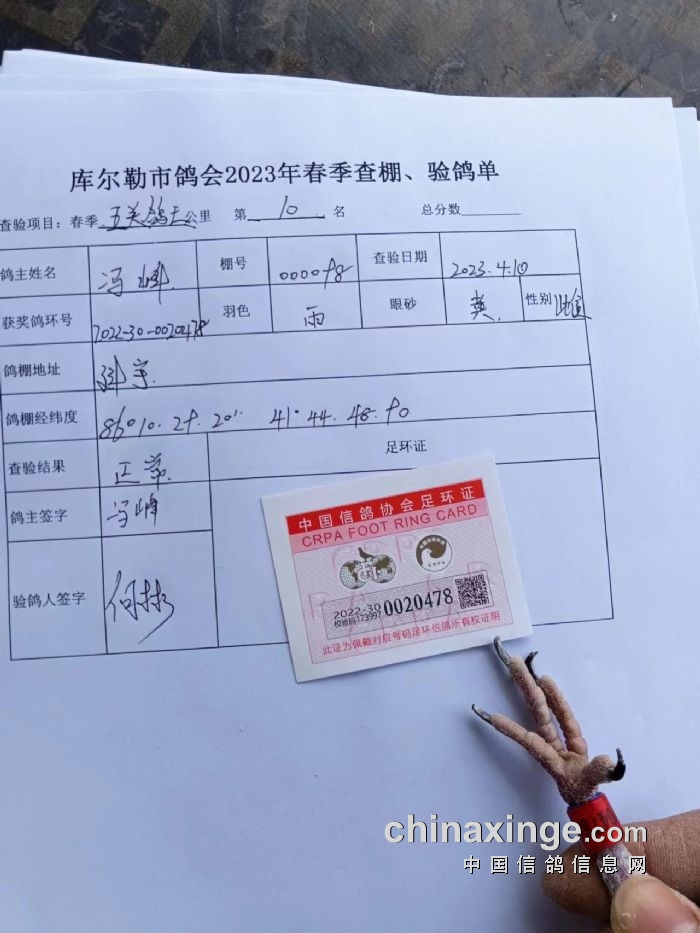 库尔勒市鸽会2023年春季查棚、验鸽单
查验项目：春季 五关鸽王 公里 第 10 名 总分数
鸽主姓名 冯峰 棚号 000098 查验日期 2023.4.10
获奖鸽环号 2022-30-0020478 羽色 雨 眼砂 黄 性别 雌
鸽棚地址
鸽棚经纬度 86°10.29.20 41.44.48.90
查验结果 正常 足环证
鸽主签字 冯峰
验鸽人签字
中国信鸽协会足环证
CRPA FOOT RING CARD
2022-30
校验码:173997
0020478
此证为佩戴对应号码足环信鸽所有权证明
chinaxinge.com
中国信鸽信息网